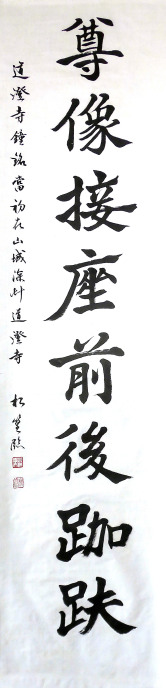 尊像接座前後跏趺
道澄寺鐘銘當初在山城深艸道澄寺 松篁臨